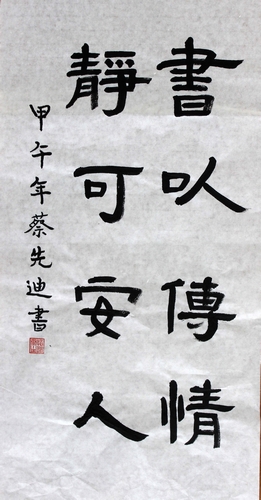 書以傳情
靜可安人
甲午年蔡先迪書